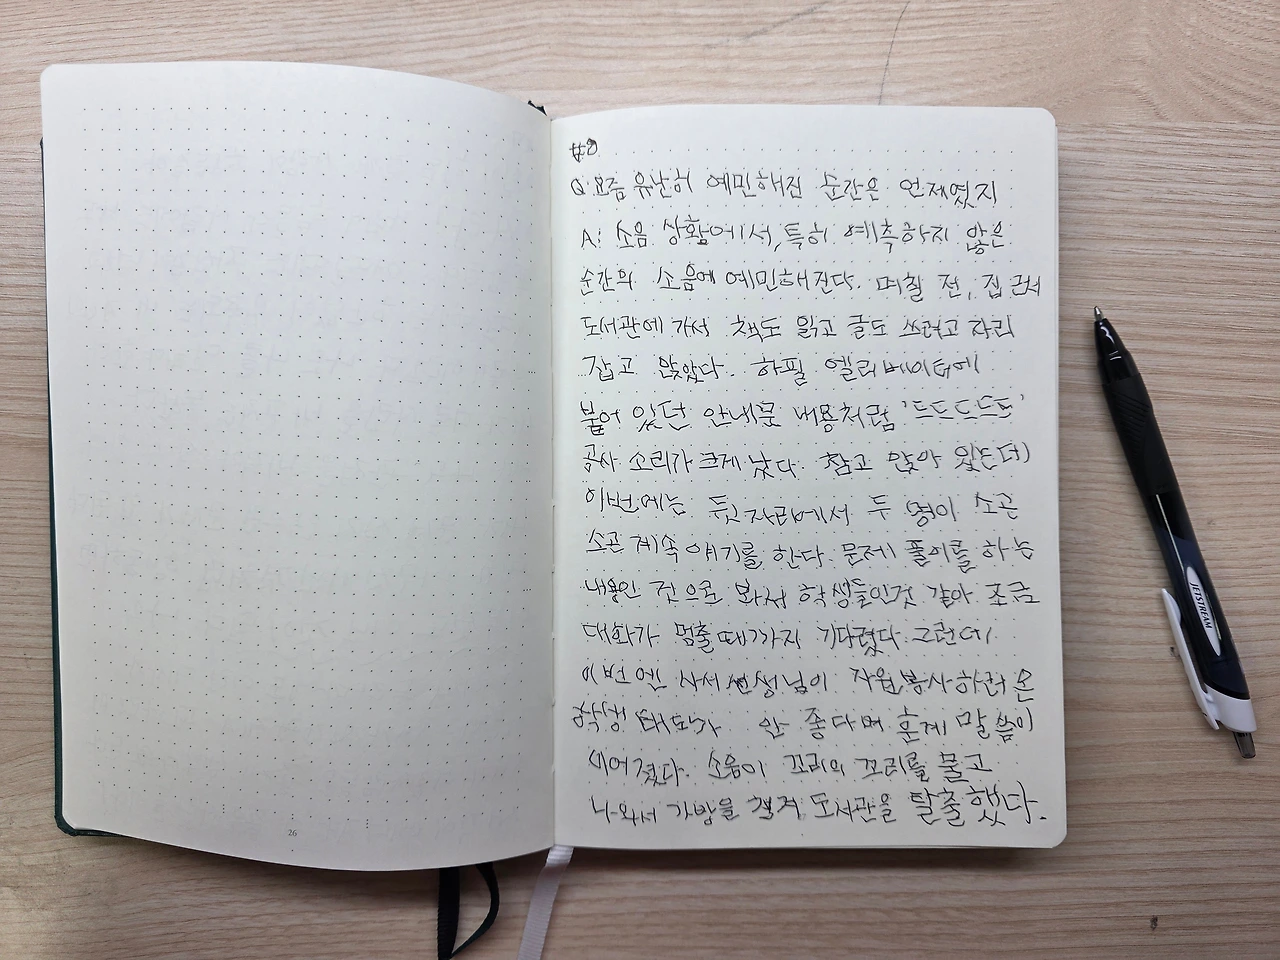 #8
Q: 요즘 유난히 예민해진 순간은 언제였지
A: 소음 상황에서, 특히 예측하지 않은
순간의 소음에 예민해진다. 며칠 전, 집 근처
도서관에 가서 책도 읽고 글도 쓰려고 자리
잡고 앉았다. 하필 엘리베이터에
붙어 있던 안내문 내용처럼 '드드드드드'
공사 소리가 크게 났다. 참고 앉아 있는데
이번에는 뒷자리에서 두 명이 소곤
소곤 계속 얘기를 한다. 문제 풀이를 하는
내용인 것으로 봐서 학생들인것 같아 조금
대화가 멈출때까지 기다렸다. 그런데
이번엔 사서 선생님이 자원봉사하러 온
학생 태도가 안 좋다며 훈계 말씀이
이어졌다. 소음이 꼬리의 꼬리를 물고
나와서 가방을 챙겨 도서관을 탈출했다.
26
JETSTREAM